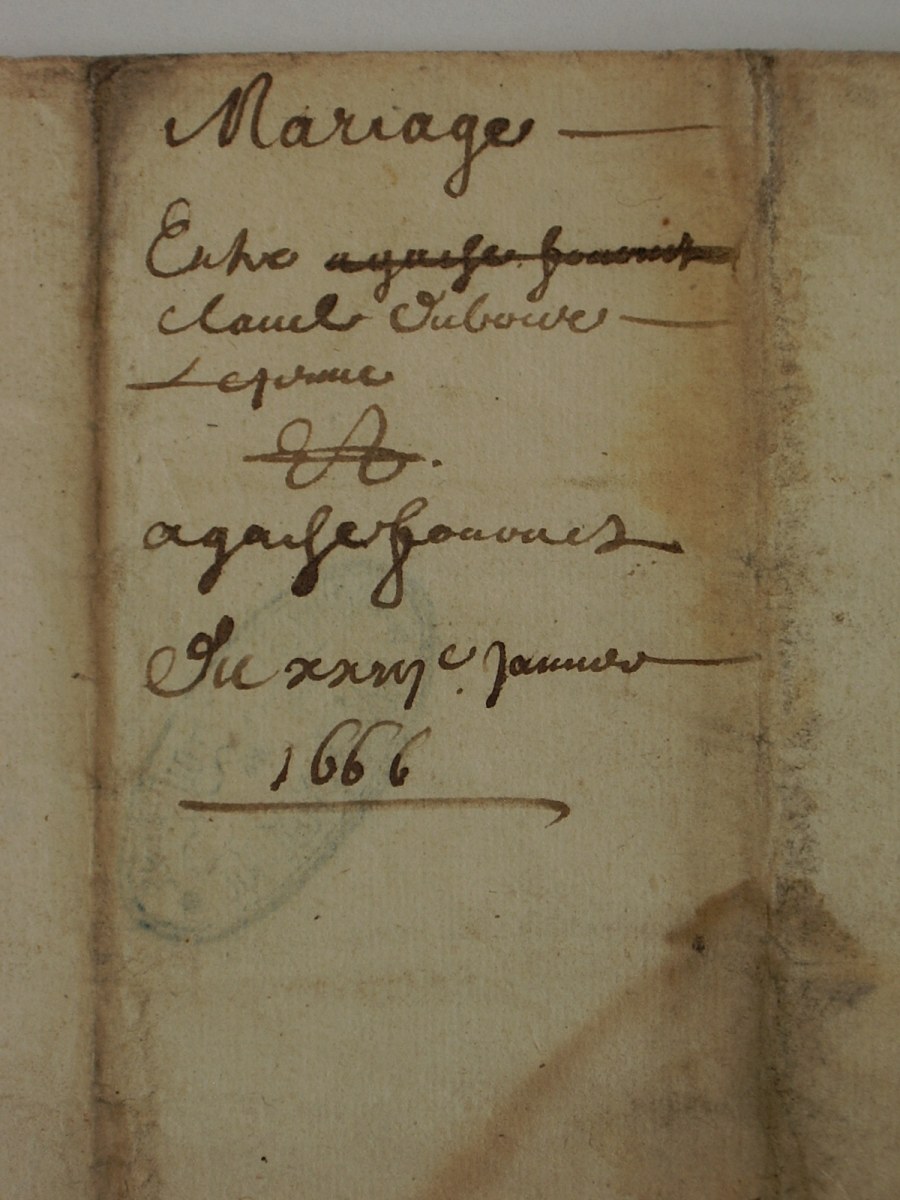 Mariage
Entre agache fonouct
claude Duboure
Lejeune
Et
agache fonouct
Du xxvije janvier
1666